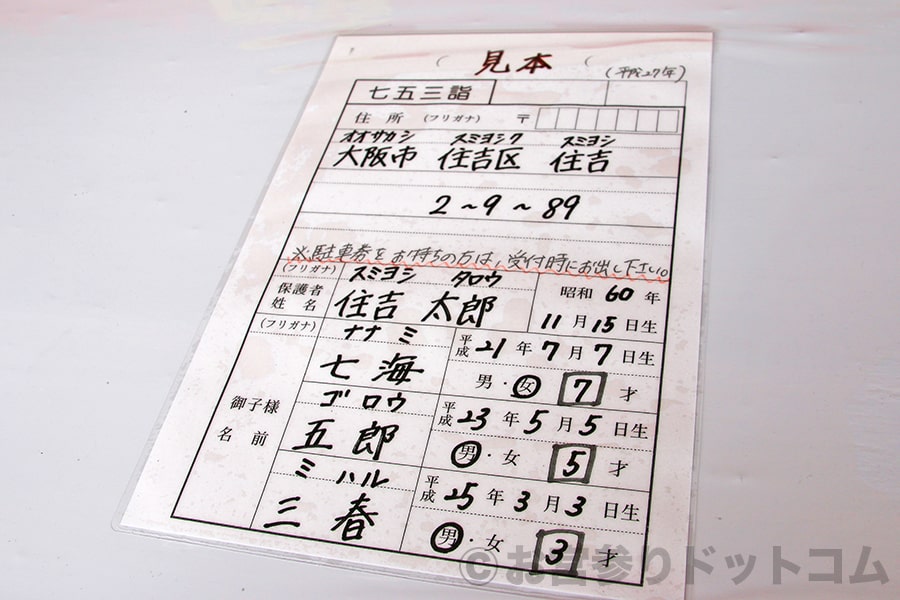 （ 見本 （
（平成27年）
七五三詣
住所 （フリガナ） 〒
オオサカシ スミヨシク スミヨシ
大阪市 住吉区 住吉
2～9～89
※駐車券をお持ちの方は、受付時にお出し下さい。
（フリガナ） スミヨシ タロウ
保護者姓名 住吉 太郎
昭和 60年
11月15日生
（フリガナ） ナナミ
御子様名前
七海
平成21年7月7日生
男・女 7才
ゴロウ
五郎
平成23年5月5日生
男・女 5才
ミハル
三春
平成25年3月3日生
男・女 3才
©お宮参りドットコム